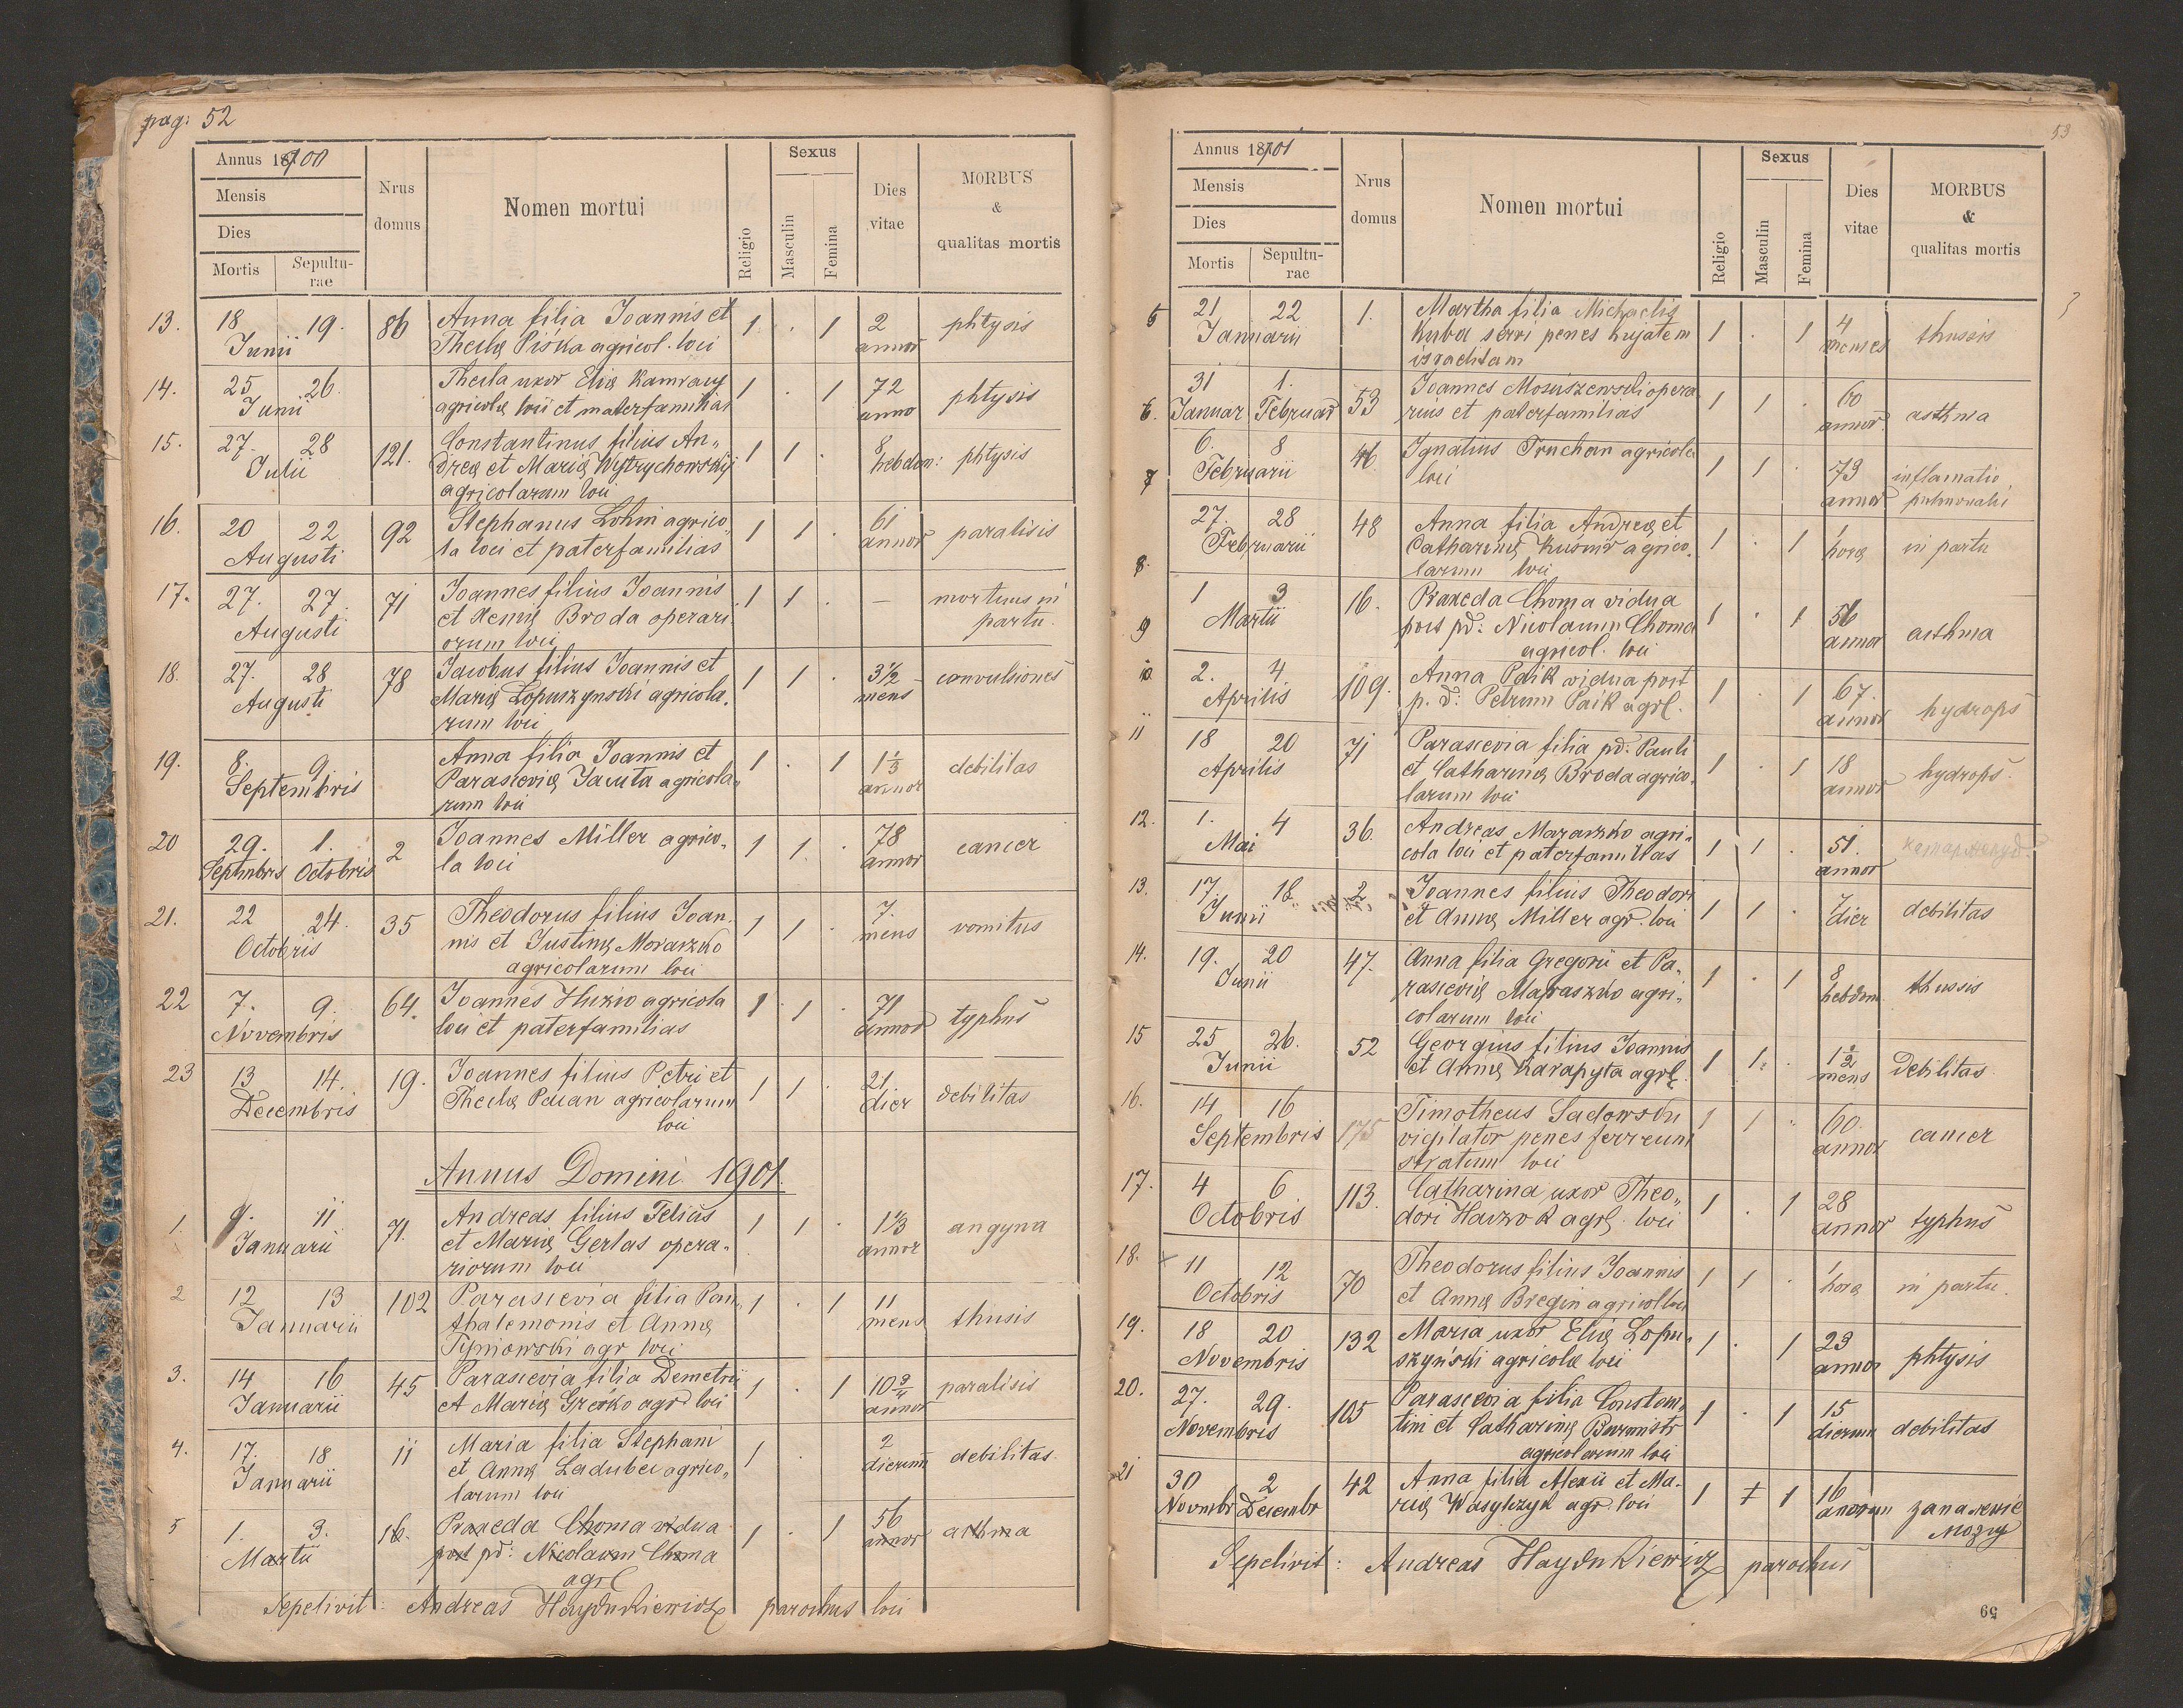 pag: 52
Annus 1900
Mensis
Dies
Mortis
Sepultu-
rae
Nrus
domus
Nomen mortui
Religio
Sexus
Masculin
Femina
Dies
vitae
MORBUS
&
qualitas mortis
13. 18 19. 86 Anna filia Joannis et 1 . 1 2 phtysis
Junii Theclæ Piśka agricol. loci annor
14. 25 26. Thecla uxor Eliæ 1 . 1 72 phtysis
Junii agricolæ loci et materfamilias anno
15. 27. 28 121. Constantinus filius An- 1 1 . 8 phtysis
Julii dreæ et Mariæ Wytrychowskyj hebdom:
agricolarum loci
16. 20 22 92 Stephanus Lohin agrico- 1 1 . 61 paralisis
Augusti la loci et paterfamilias annor
17. 27. 27 71 Joannes filius Joannis 1 1 . — mortuus in
Augusti et Xeniæ Broda operari- partu.
orum loci
18. 27. 28 78 Jacobus filius Joannis et 1 1 . 3½ convulsiones
Augusti Mariæ Łopuszynski agricola- mens
rum loci
19. 8. 9. Anna filia Joannis et 1 . 1 1⅓ debilitas
Septembris Parasceviæ Jacuta agricola- annor
rum loci
20 29. 1. 2 Joannes Miller agrico- 1 1 . 78 cancer
Septmbris Octobris la loci annor
21. 22 24. 35 Theodorus filius Joan- 1 1 . 7. vomitus
Octobris nis et Justinæ Moraczko mens
agricolarum loci
22 7. 9. 64. Joannes Huzio agricola 1 1 . 71 typhus
Novembris loci et paterfamilias annor
23 13 14. 19. Joannes filius Petri et 1 1 . 21 debilitas
Decembris Theclæ Pecan agricolarum dier
loci
Annus Domini 1901.
1. 9. 11 71. Andreas filius Felicis 1 1 . 1⅓ angyna
Januarii et Mariæ Gerlas opera- annor
riorum loci
2 12 13 102 Parascevia filia Pan- 1 . 1 11 thusis
Januarii thalemonis et Annæ mens
Tyniowski agr loci
3. 14 16 45 Parascevia filia Demetrii 1 . 1 10¾ paralisis
Januarii et Mariæ Greśko agr loci annor
4. 17. 18 11 Maria filia Stephani 1 . 2 debilitas.
Januarii et Annæ Ladubec agrico- dierum
larum loci
5 1. 3. 16. Praxeda Choma vidua 1 . 1 56 asthma
Martii post pd: Nicolaum Choma annor
agrl
Sepelivit: Andreas Haydukiewicz parochus loci
53
Annus 1901
Mensis
Dies
Mortis
Sepultu-
rae
Nrus
domus
Nomen mortui
Religio
Sexus
Masculin
Femina
Dies
vitae
MORBUS
&
qualitas mortis
5 21 22 1. Martha filia Michaelis 1 . 1 4 thussis
Januarii Kuba servi penes hujatem menses
israelitam
6. 31 1. 53 Joannes Mosciszewski opera- 1 1 . 60 asthma
Januar Februar rius et paterfamilias annor.
7 6. 8 46. Ignatius Truchan agricola 1 1 . 73 inflamatio
Februarii loci annor pulmonalis
8. 27. 28 48 Anna filia Andreæ et 1 . 1 1 in partu
Februarii Catharinæ Kusmir agrico- hora
larum loci
9 1 3 16. Praxeda Choma vidua 1 . 1 56 asthma
Martii post pd: Nicolaum Choma annor
agricol. loci
10 2. 4. 109. Anna Paik vidua post 1 . 1 67. hydrops
Aprilis p. d: Petrum Paik agrl. annor
11 18 20 71 Parascevia filia pd. Pauli 1 . 1 18 hydrops.
Aprilis et Catharinæ Broda agrico- annor
larum loci
12. 1. 4 36. Andreas Maraczko agri- 1 1 . 51.
Mai cola loci et paterfamilias annor
13. 17. 18. 2 Joannes filius Theodori 1 1 . 7 debilitas
Junii et Annæ Miller agr. loci dier
14. 19. 20 47. Anna filia Gregorii et Pa- 1 . 1 8 thussis
Junii rasceviæ Maraszko agri- hebdom
colarum loci
15 25 26. 52 Georgius filius Joannis 1 1. . 1½ debilitas
Junii et Annæ Karapyta agrl. mens
16. 14 16 175 Timotheus Sadowski 1 1 . 60. cancer
Septembris vigilator penes ferreum annor
stratum loci
17. 4 6 113. Catharina uxor Theo- 1 . 1 28 typhus
Octobris dori Haczok agrl. loci annor
18. × 11 12 70 Theodorus filius Joannis 1 1 . 1 in partu.
Octobris et Annæ Bregin agricol loci hora
19. 18 20 132 Maria uxor Eliæ Łopu- 1 . 1 23 phtysis
Novembris szyński agricolæ loci annor
20. 27. 29. 105 Parascevia filia Constan- 1 . 1 15 debilitas
Novembris tini et Catharinæ Burmistr dierum
agricolarum loci
21 30 2 42 Anna filia Alexii et Ma- 1 1 16
Novmbr Decembr riæ Wasylczyk agr. loci annorum
Sepelivit: Andreas Haydukiewicz parochus
59